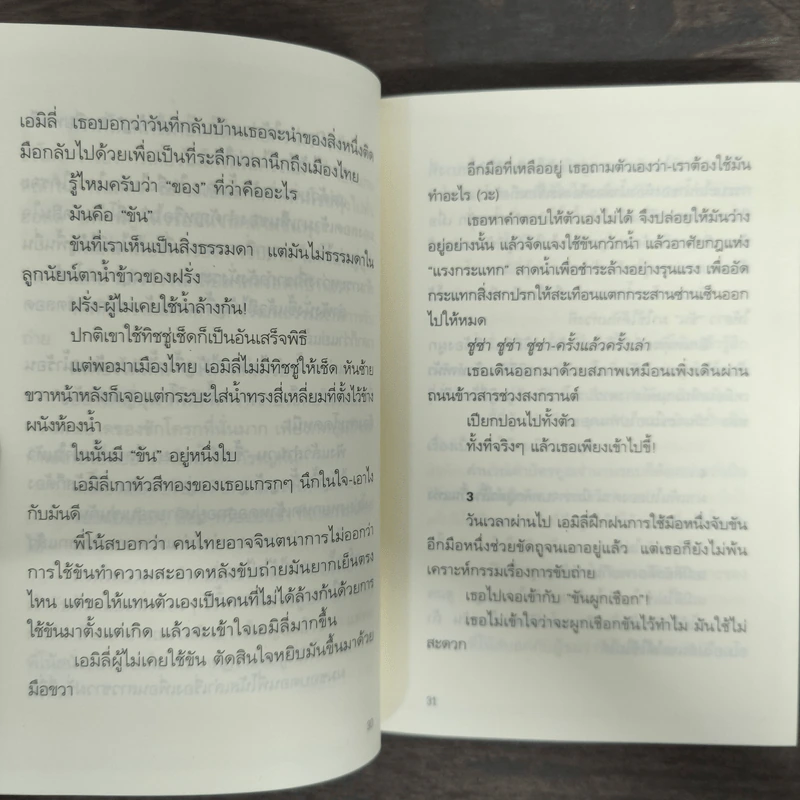 เอมิลี่ เธอบอกว่าวันที่กลับบ้านเธอจะนำของสิ่งหนึ่งติด
มือกลับไปด้วยเพื่อเป็นที่ระลึกเวลานึกถึงเมืองไทย
รู้ไหมครับว่า “ของ” ที่ว่าคืออะไร
มันคือ “ขัน”
ขันที่เราเห็นเป็นสิ่งธรรมดา แต่มันไม่ธรรมดาใน
ลูกนัยน์ตาน้ำข้าวของฝรั่ง
ฝรั่ง-ผู้ไม่เคยใช้น้ำล้างก้น!
ปกติเขาใช้ทิชชู่เช็ดก็เป็นอันเสร็จพิธี
แต่พอมาเมืองไทย เอมิลี่ไม่มีทิชชู่ให้เช็ด หันซ้าย
ขวาหน้าหลังก็เจอแต่กระบะใส่น้ำทรงสี่เหลี่ยมที่ตั้งไว้ข้าง
ผนังห้องน้ำ
ในนั้นมี “ขัน” อยู่หนึ่งใบ
เอมิลี่เกาหัวสีทองของเธอแกรกๆ นึกในใจ-เอาไง
กับมันดี
พี่โน้สบอกว่า คนไทยอาจจินตนาการไม่ออกว่า
การใช้ขันทำความสะอาดหลังขับถ่ายมันยากเย็นตรง
ไหน แต่ขอให้แทนตัวเองเป็นคนที่ไม่ได้ล้างก้นด้วยการ
ใช้ขันมาตั้งแต่เกิด แล้วจะเข้าใจเอมิลี่มากขึ้น
เอมิลี่ผู้ไม่เคยใช้ขัน ตัดสินใจหยิบมันขึ้นมาด้วย
มือขวา
30
อีกมือที่เหลืออยู่ เธอถามตัวเองว่า-เราต้องใช้มัน
ทำอะไร (วะ)
เธอหาคำตอบให้ตัวเองไม่ได้ จึงปล่อยให้มันว่าง
อยู่อย่างนั้น แล้วจัดแจงใช้ขันกวักน้ำ แล้วอาศัยกฎแห่ง
“แรงกระแทก” สาดน้ำเพื่อชำระล้างอย่างรุนแรง เพื่ออัด
กระแทกสิ่งสกปรกให้สะเทือนแตกกระสานซ่านเซ็นออก
ไปให้หมด
ซู่ซ่า ซู่ซ่า ซู่ซ่า-ครั้งแล้วครั้งเล่า
เธอเดินออกมาด้วยสภาพเหมือนเพิ่งเดินผ่าน
ถนนข้าวสารช่วงสงกรานต์
เปียกปอนไปทั้งตัว
ทั้งที่จริงๆ แล้วเธอเพียงเข้าไปขี้!
3
วันเวลาผ่านไป เอมิลี่ฝึกฝนการใช้มือหนึ่งจับขัน
อีกมือหนึ่งช่วยขัดถูจนเอาอยู่แล้ว แต่เธอก็ยังไม่พ้น
เคราะห์กรรมเรื่องการขับถ่าย
เธอไปเจอเข้ากับ “ขันผูกเชือก”!
เธอไม่เข้าใจว่าจะผูกเชือกขันไว้ทำไม มันใช้ไม่
สะดวก
31